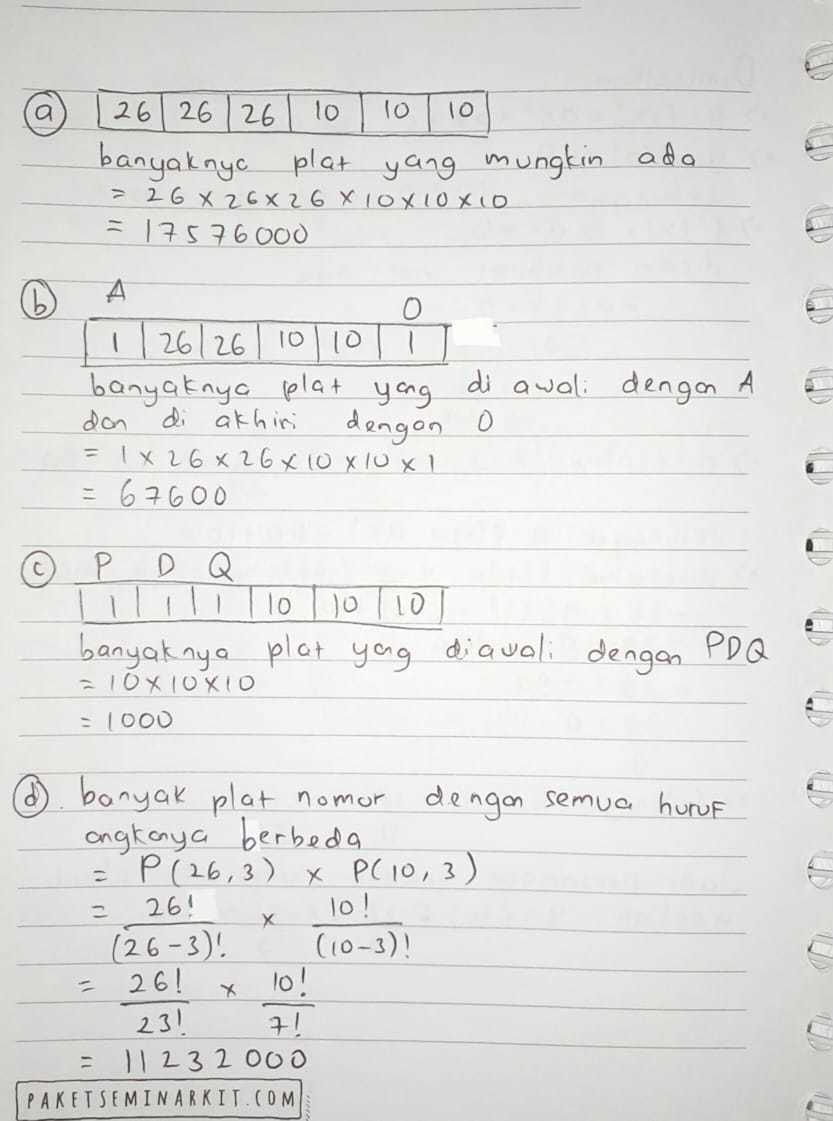 a 26 26 26 10 10 10
banyaknya plat yang mungkin ada
= 26 × 26 × 26 × 10 × 10 × 10
= 17576000
b A O
1 26 26 10 10 1
banyaknya plat yang di awali dengan A
dan di akhiri dengan O
= 1 × 26 × 26 × 10 × 10 × 1
= 67600
c P D Q
1 1 1 10 10 10
banyaknya plat yang diawali dengan PDQ
= 10 × 10 × 10
= 1000
d. banyak plat nomor dengan semua huruf
angkanya berbeda
= P(26,3) × P(10,3)
= 26!/(26-3)! × 10!/(10-3)!
= 26!/23! × 10!/7!
= 11232000
PAKETSEMINARKIT.COM